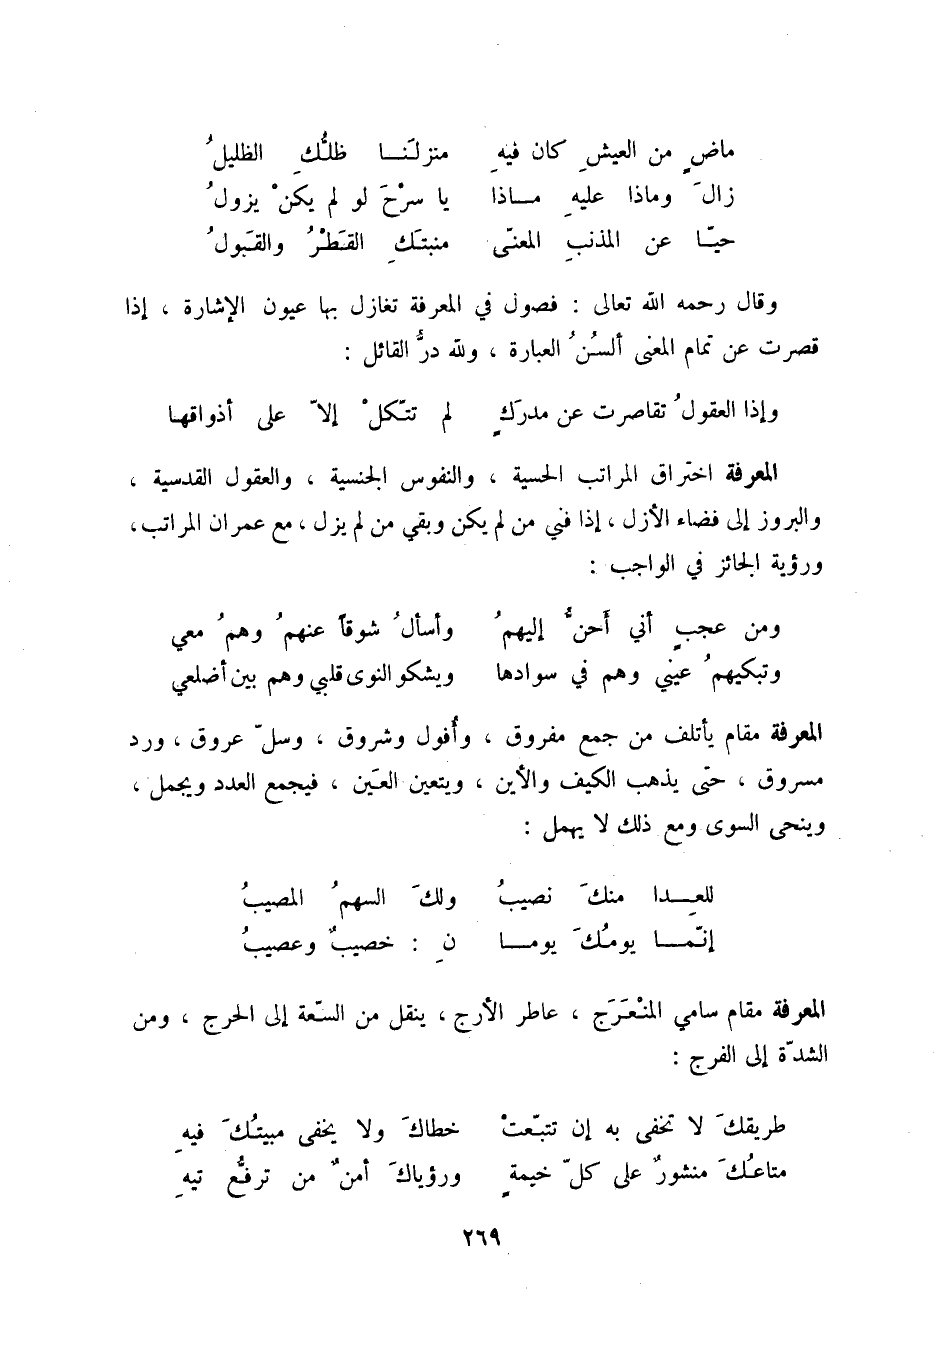 ماضٍ من العيشِ كان فيهِ منزلَنـــا ظلُّكِ الظليلُ
زالَ وماذا عليهِ مــاذا يا سرْحَ لو لم يكنْ يزولُ
حيّــا عن المذنبِ المعنّى منبتَكِ القَطْرُ والقَبولُ
وقال رحمه الله تعالى : فصول في المعرفة تغازل بها عيون الإشارة ، إذا
قصرت عن تمام المعنى ألسُنُ العبارة ، ولله درُّ القائل :
وإذا العقولُ تقاصرت عن مدرَكٍ لم تتّكلْ إلاّ على أذواقها
المعرفة اختراق المراتب الحسية ، والنفوس الجنسية ، والعقول القدسية ،
والبروز إلى فضاء الأزل ، إذا فني من لم يكن وبقي من لم يزل ، مع عمران المراتب ،
ورؤية الجائز في الواجب :
ومن عجبٍ أني أَحنُّ إليهمُ وأسألُ شوقاً عنهمُ وهمُ معي
وتبكيهمُ عيني وهم في سوادها ويشكو النوى قلبي وهم بين أضلعي
المعرفة مقام يأتلف من جمع مفروق ، وأُفول وشروق ، وسلّ عروق ، ورد
مسروق ، حتّى يذهب الكيف والأين ، ويتعين العَين ، فيجمع العدد ويجمل ،
وينحى السوى ومع ذلك لا يهمل :
للعِــدا منكَ نصيبُ ولكَ السهمُ المصيبُ
إنّمــا يومُكَ يومــا نِ : خصيبٌ وعصيبُ
المعرفة مقام سامي المنْعَرَج ، عاطر الأرج ، ينقل من السّعة إلى الحرج ، ومن
الشدّة إلى الفرج :
طريقكَ لا تخفى به إن تتبّعتْ خطاكَ ولا يخفى مبيتُكَ فيهِ
متاعُكَ منشورٌ على كلّ خيمةٍ ورؤياكَ أمنٌ من ترفّعُ تيهِ
٢٦٩